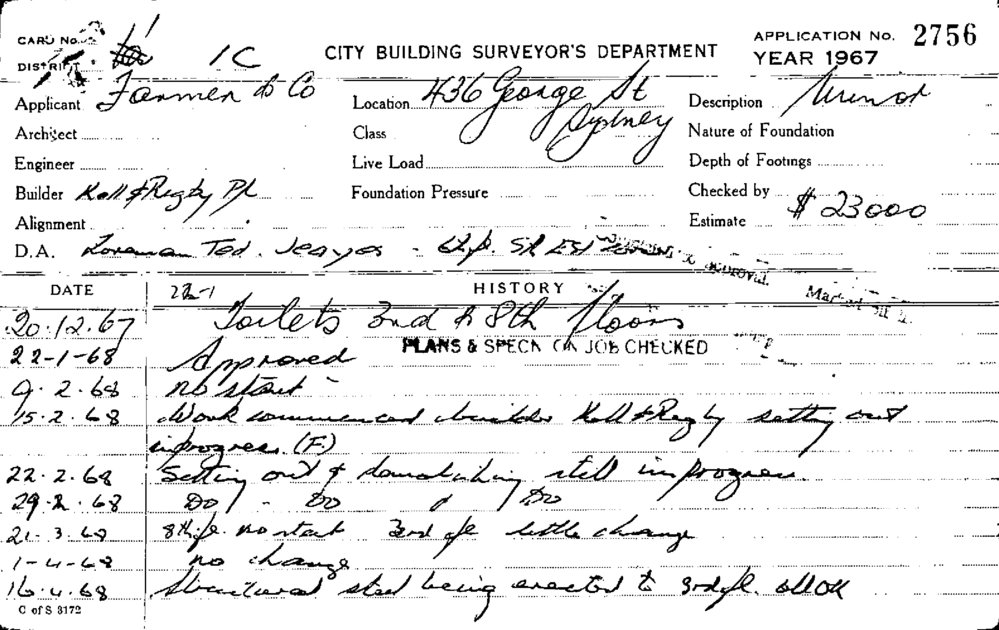 CARD No.
1C
CITY BUILDING SURVEYOR'S DEPARTMENT
APPLICATION No. 2756
YEAR 1967
DISTRICT
Applicant Farmer & Co
Location 436 George St
Sydney
Description Minor
Architect
Class
Nature of Foundation
Engineer
Live Load
Depth of Footings
Builder Kell & Rigby P/L
Foundation Pressure
Checked by
Alignment
Estimate $23000
D.A. Foreman Ted
approval.
DATE
22-1
HISTORY
20.12.67 Toilets 3rd & 8th floors
22-1-68 Approved PLANS & SPECN ON JOB CHECKED
9.2.68 no start -
15.2.68 Work commenced builder Kell & Rigby setting out
in progress. (F.)
22.2.68 Setting out & demolishing still in progress
29.2.68 Do - Do Do
21.3.68 8th fl. no start 3rd fl little change
1-4-68 no change
16.4.68 Structural steel being erected to 3rd fl. all OK
C of S 3172